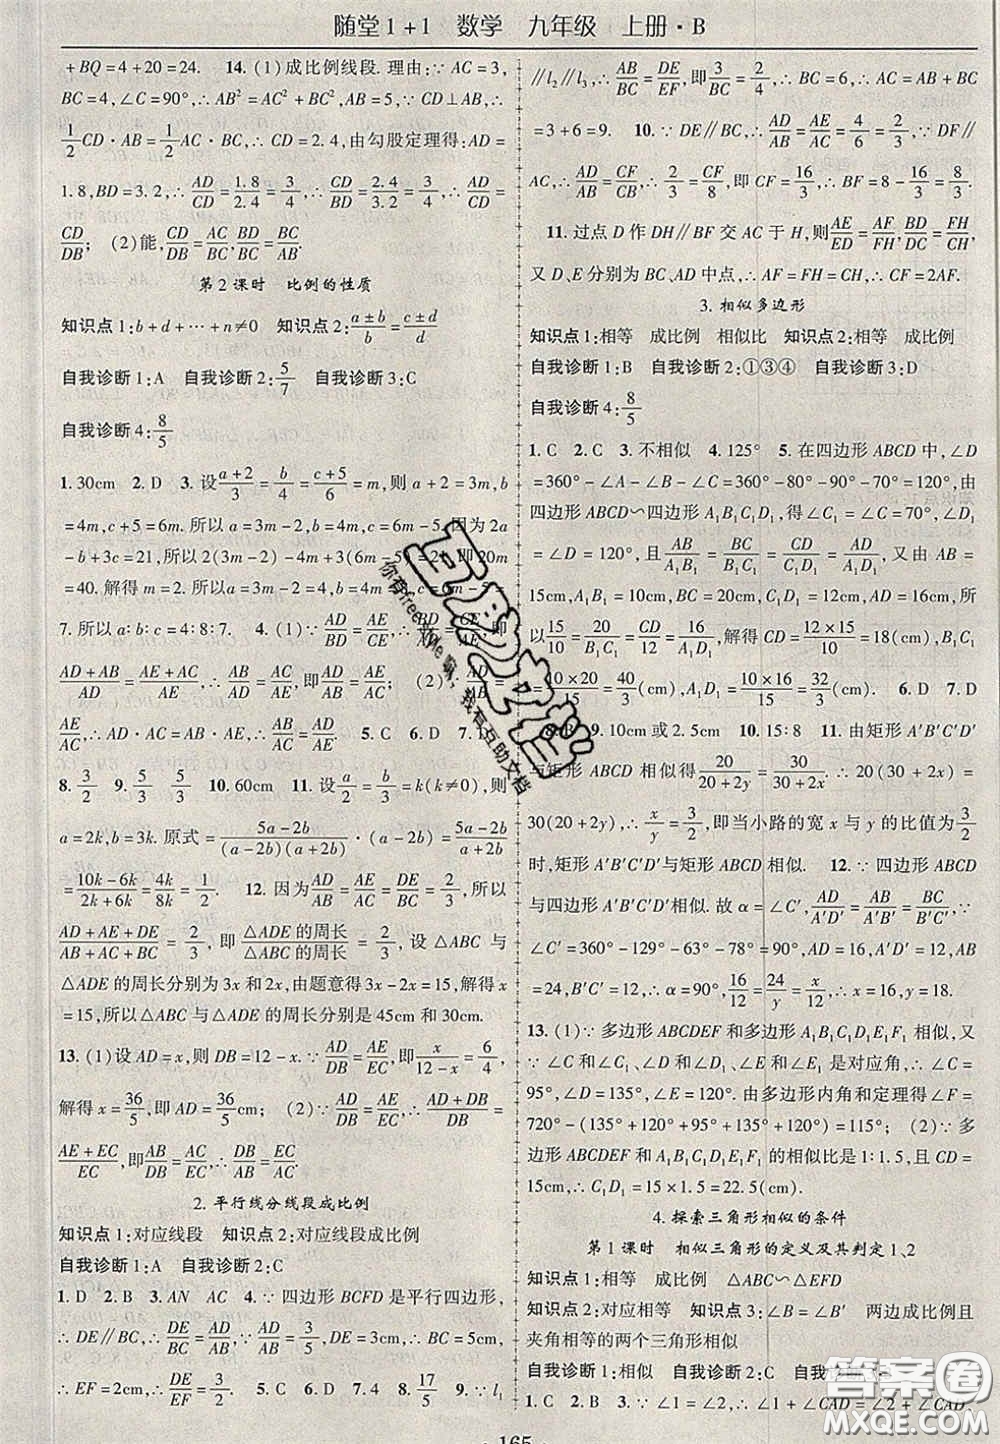 随堂1+1 数学 九年级 上册·B
+BQ=4+20=24. 14. (1)成比例线段. 理由:∵AC=3,
BC=4,∠C=90°,∴AB²=AC²+BC²,AB=5. ∵CD⊥AB,∴
1/2 CD·AB=1/2 AC·BC,∴CD=2.4,由勾股定理得:AD=
1.8,BD=3.2,∴AD/CD=1.8/2.4=3/4,∴CD/DB=2.4/3.2=3/4,∴AD/CD=
CD/DB; (2)能,CD/DB=AC/BC,BD/BC=BC/AB.
第2课时 比例的性质
知识点1:b+d+…+n≠0 知识点2:(a±b)/b=(c±d)/d
自我诊断1:A 自我诊断2:5/7 自我诊断3:C
自我诊断4:8/5
1. 30cm 2. D 3. 设(a+2)/3=b/4=(c+5)/6=m,则a+2=3m,b
=4m,c+5=6m. 所以a=3m-2,b=4m,c=6m-5. 因为2a
-b+3c=21,所以2(3m-2)-4m+3(6m-5)=21,即20m
=40. 解得m=2. 所以a=3m-2=4,b=4m=8,c=6m-5=
7. 所以a:b:c=4:8:7. 4. (1)∵AD/BD=AE/CE,∴BD/AD=CE/AE,即
(AD+AB)/AD=(AE+AC)/AE,∴AB/AD=AC/AE,即AD/AB= (2)∵AD/AB=
AE/AC,∴AD·AC=AB·AE,∴AB/AC=AD/AE. 5. C 6. D 7.
8. 3/2 9. 5/3 5/3 10. 60cm 11. 设a/2=b/3=k(k≠0),则
a=2k,b=3k. 原式=(5a-2b)/((a-2b)(a+2b))·(a-2b)=(5a-2b)/(a+2b)
=(10k-6k)/(2k+6k)=4k/8k=1/2. 12. 因为AD/AB=AE/AC=DE/BC=2/3,所以
(AD+AE+DE)/(AB+AC+BC)=2/3,即△ADE的周长/△ABC的周长=2/3,设△ABC与
△ADE的周长分别为3x和2x,由题意得3x-2x=15,解得x
=15,所以△ABC与△ADE的周长分别是45cm和30cm.
13. (1)设AD=x,则DB=12-x. ∵AD/DB=AE/EC,即x/(12-x)=6/4,
解得x=36/5,即AD=36/5cm; (2)∵AD/DB=AE/EC,∴(AD+DB)/DB=
(AE+EC)/EC,即AB/DB=AC/EC,∴DB/AB=EC/AC.
2. 平行线分线段成比例
知识点1:对应线段 知识点2:对应线段成比例
自我诊断1:A 自我诊断2:C
1. D 2. B 3. AN AC 4. ∵四边形BCFD是平行四边形,
∴DE∥BC,∴DE/BC=AE/AC,∴DE/BD=3/5,∵BD=CF=5cm,
∴EF=2cm,∴DE/EF=3/2. 5. C 6. D 7. 4 8. 17/5 9. ∵l₁
∥l₂∥l₃,∴AB/BC=DE/EF,即3/BC=2/4,∴BC=6,∴AC=AB+BC
=3+6=9. 10. ∵DE∥BC,∴AD/AB=AE/AC=4/6=2/3,∵DF∥
AC,∴AD/AB=CF/CB,∴2/3=CF/8,即CF=16/3,∴BF=8-16/3=8/3.
11. 过点D作DH∥BF交AC于H,则AE/ED=AF/FH,BD/DC=FH/CH,
又D、E分别为BC、AD中点,∴AF=FH=CH,∴CF=2AF.
3. 相似多边形
知识点1:相等 成比例 相似比 知识点2:相等 成比例
自我诊断1:B 自我诊断2:①③④ 自我诊断3:D
自我诊断4:8/5
1. C 2. C 3. 不相似 4. 125° 5. 在四边形ABCD中,∠D
=360°-∠A-∠B-∠C=360°-80°-90°-70°=120°,由
四边形ABCD∽四边形A₁B₁C₁D₁,得∠C₁=∠C=70°,∠D₁
=∠D=120°,且AB/A₁B₁=BC/B₁C₁=CD/C₁D₁=AD/A₁D₁,又由AB=
15cm,A₁B₁=10cm,BC=20cm,C₁D₁=12cm,AD=16cm,所
以15/10=20/B₁C₁=CD/12=16/A₁D₁,解得CD=(12×15)/10=18(cm),B₁C₁
=(10×20)/15=40/3(cm),A₁D₁=(10×16)/15=32/3(cm) 6. D 7. D
9. 10cm或2.5cm 10. 15:8 11. 由矩形A′B′C′D′
与矩形ABCD相似得20/(20+2y)=30/(30+2x). ∴20(30+2x)=
30(20+2y),∴x/y=3/2,即当小路的宽x与y的比值为3/2
时,矩形A′B′C′D′与矩形ABCD相似. 12. ∵四边形ABCD
与四边形A′B′C′D′相似. 故α=∠C′,AD/A′D′=AB/A′B′=BC/B′C′,∵
∠C′=360°-129°-63°-78°=90°,AD=16,A′D′=12,AB
=24,B′C′=12,∴α=90°,16/12=24/y=x/12,∴x=16,y=18.
13. (1)∵多边形ABCDEF和多边形A₁B₁C₁D₁E₁F₁相似,又
∵∠C和∠C₁、∠D和∠D₁、∠E和∠E₁是对应角,∴∠C=
95°,∠D=135°,∠E=120°. 由多边形内角和定理得∠F=
720°-(135°+120°+95°+135°+120°)=115°; (2)∵多
边形ABCDEF和A₁B₁C₁D₁E₁F₁的相似比是1:1.5,且CD=
15cm,∴C₁D₁=15×1.5=22.5(cm).
4. 探索三角形相似的条件
第1课时 相似三角形的定义及其判定1、2
知识点1:相等 成比例 △ABC∽△EFD
知识点2:对应相等 知识点3:∠B=∠B′ 两边成比例且
夹角相等的两个三角形相似
自我诊断1:相似 自我诊断2:C 自我诊断
1. C 2. C 3. ∵∠1=∠2,∴∠1+∠CAD=∠2+∠CAD,
165
你有freestyle嘛,我有互助文档
答案圈
MXQE.COM